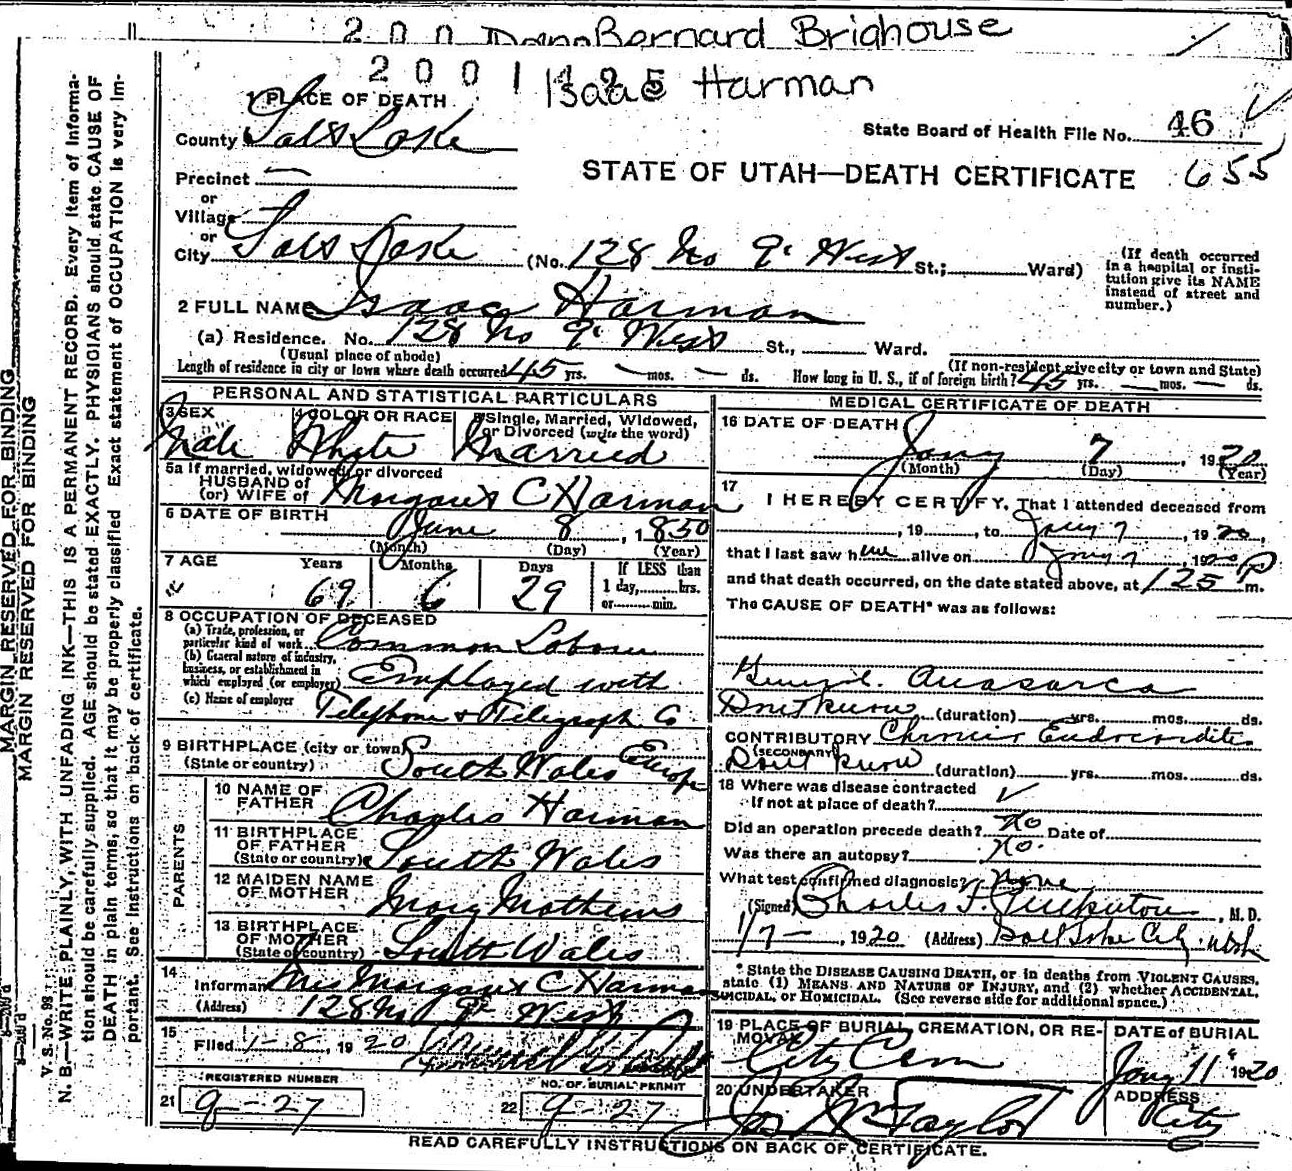 2 0 0 Bernard Brighouse
2 0 0 1 Isaac Harman
1 PLACE OF DEATH
County Salt Lake
State Board of Health File No. 46
STATE OF UTAH—DEATH CERTIFICATE 655
Precinct —
or
Village
or
City Salt Lake (No. 128 No 9" West St.; Ward)
(If death occurred in a hospital or institution give its NAME instead of street and number.)
2 FULL NAME Isaac Harman
(a) Residence. No. 128 No 9" West St., Ward.
(Usual place of abode) (If non-resident give city or town and State)
Length of residence in city or town where death occurred 45 yrs. — mos. — ds. How long in U. S., if of foreign birth? 45 yrs. — mos. — ds.
PERSONAL AND STATISTICAL PARTICULARS
3 SEX 4 COLOR OR RACE 5 Single, Married, Widowed, or Divorced (write the word)
Male White Married
5a If married, widowed, or divorced
HUSBAND of
(or) WIFE of Margaret C Harman
6 DATE OF BIRTH June 8, 1850
(Month) (Day) (Year)
7 AGE Years Months Days If LESS than 1 day, hrs. or min.
69 6 29
8 OCCUPATION OF DECEASED
(a) Trade, profession, or particular kind of work Common Laborer
(b) General nature of industry, business, or establishment in which employed (or employer) Employed with
(c) Name of employer Telephone & Telegraph Co
9 BIRTHPLACE (city or town)
(State or country) South Wales Europe
PARENTS
10 NAME OF FATHER Charles Harman
11 BIRTHPLACE OF FATHER
(State or country) South Wales
12 MAIDEN NAME OF MOTHER Mary Mathews
13 BIRTHPLACE OF MOTHER
(State or country) South Wales
14
Informant Mrs Margaret C Harman
(Address) 128 No 9" West
15
Filed 1-8, 1920
REGISTERED NUMBER NO. OF BURIAL PERMIT
21 9-27 22 9-27
MEDICAL CERTIFICATE OF DEATH
16 DATE OF DEATH
Jany 7, 1920
(Month) (Day) (Year)
17
I HEREBY CERTIFY, That I attended deceased from
, 19 , to Jany 7 1920,
that I last saw him alive on Jany 7, 1920
and that death occurred, on the date stated above, at 1 25 P m.
The CAUSE OF DEATH* was as follows:
Anasarca
Dont know (duration) yrs. mos. ds.
CONTRIBUTORY Chronic Endocarditis
(SECONDARY)
Dont know (duration) yrs. mos. ds.
18 Where was disease contracted
if not at place of death?
Did an operation precede death? No Date of
Was there an autopsy? No.
What test confirmed diagnosis? None
(Signed) Charles F. , M. D.
1/7 — , 1920 (Address) Salt Lake City Utah
* State the DISEASE CAUSING DEATH, or in deaths from VIOLENT CAUSES, state (1) MEANS AND NATURE OF INJURY, and (2) whether ACCIDENTAL, SUICIDAL, or HOMICIDAL. (See reverse side for additional space.)
19 PLACE OF BURIAL, CREMATION, OR REMOVAL DATE of BURIAL
City Cem Jany 11" 1920
20 UNDERTAKER ADDRESS
Taylor City
READ CAREFULLY INSTRUCTIONS ON BACK OF CERTIFICATE.
MARGIN RESERVED FOR BINDING
MARGIN RESERVED FOR BINDING
V. S. No. 98
N. B.—WRITE PLAINLY, WITH UNFADING INK—THIS IS A PERMANENT RECORD. Every item of information should be carefully supplied. AGE should be stated EXACTLY. PHYSICIANS should state CAUSE OF DEATH in plain terms, so that it may be properly classified. Exact statement of OCCUPATION is very important. See instructions on back of certificate.